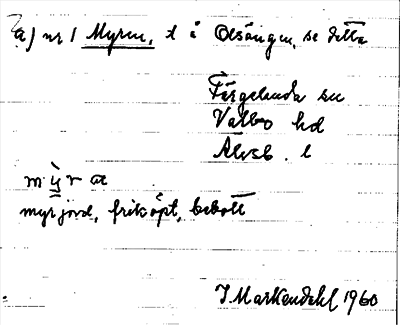 a) nr 1 Myren, t å Olsängen, se detta
Färgelanda sn
Valbo hd
Älvsb. l
mỳ̤ra
myrjord, friköpt, bebott
J Markendahl 1960